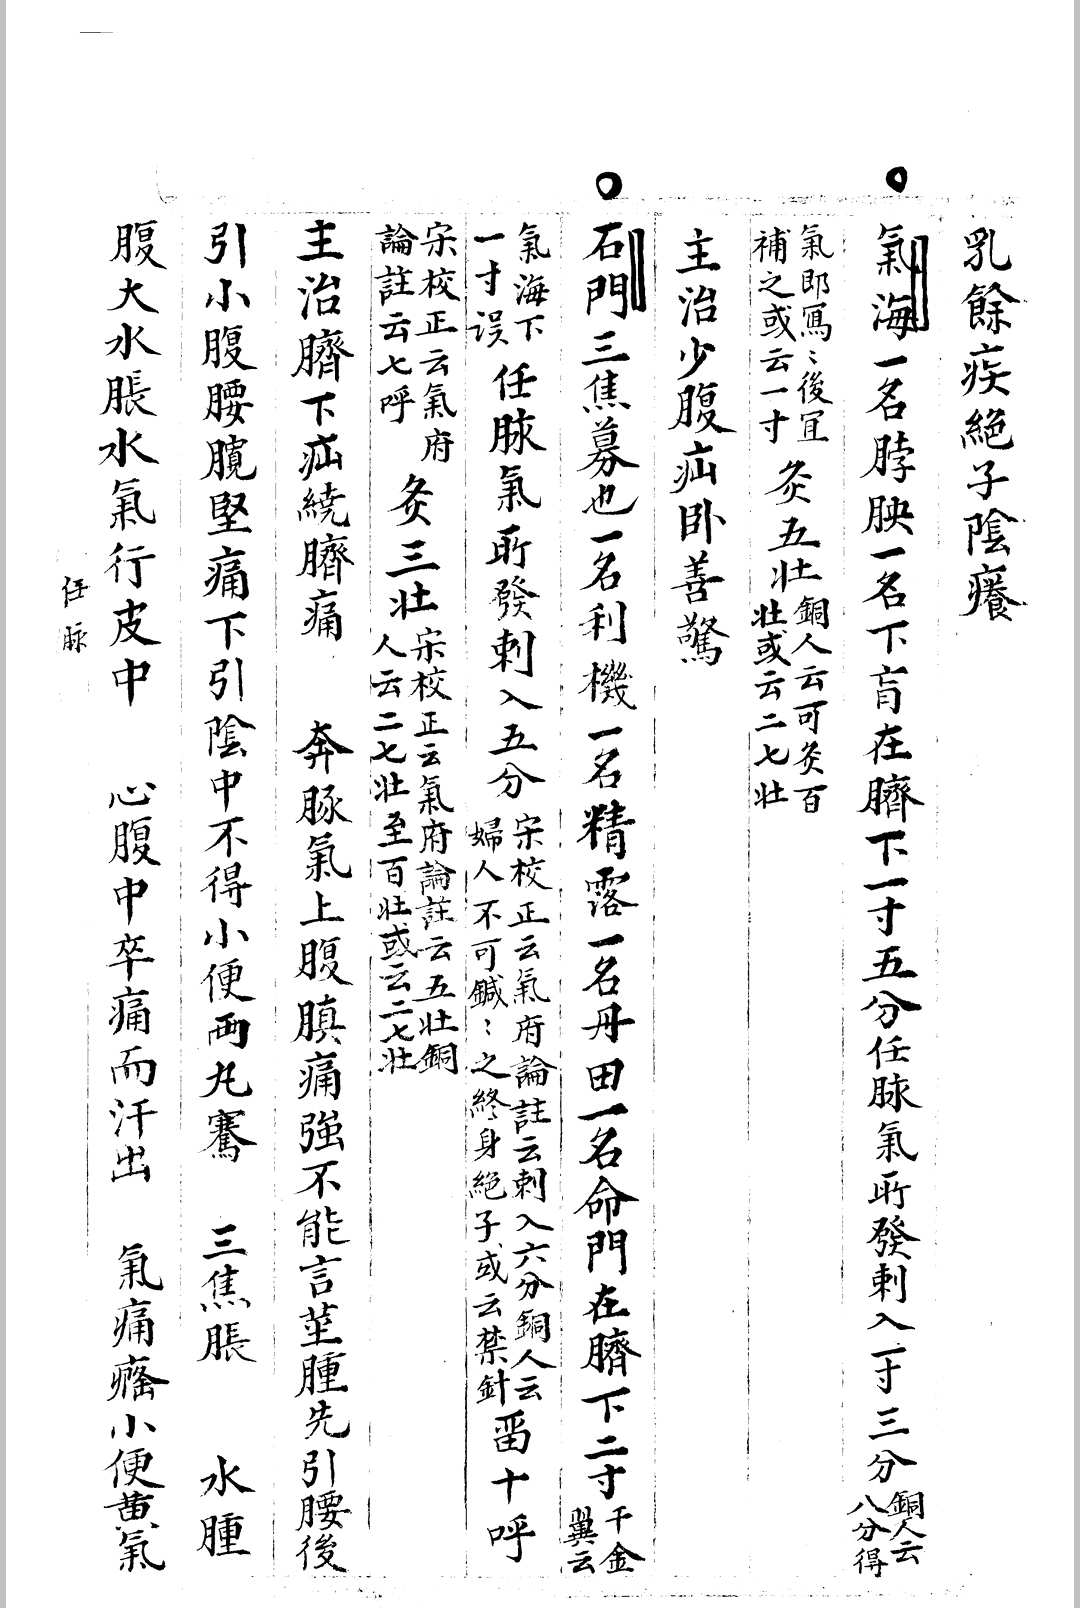 乳餘疾絕子陰癢
氣海一名脖胦一名下肓在臍下一寸五分任脉氣所發刺入一寸三分銅人云八分得
氣即寫〻後冝補之或云一寸灸五壮銅人云可灸百壮或云二七壮
主治少腹疝卧善驚
石門三焦募也一名利機一名精露一名丹田一名命門在臍下二寸千金翼云
氣海下一寸误任脉氣所發刺入五分宋校正云氣府論註云刺入六分銅人云婦人不可鍼〻之終身絕子或云禁針畱十呼
宋校正云氣府論註云七呼灸三壮宋校正云氣府論註云五壮銅人云二七壮至百壮或云二七壮
主治臍下疝繞臍痛 奔豚氣上腹䐜痛強不能言莖腫先引腰後
引小腹腰髖堅痛下引陰中不得小便两丸騫 三焦脹 水腫
腹大水脹水氣行皮中 心腹中卒痛而汗出 氣痛癊小便黄氣
任脉